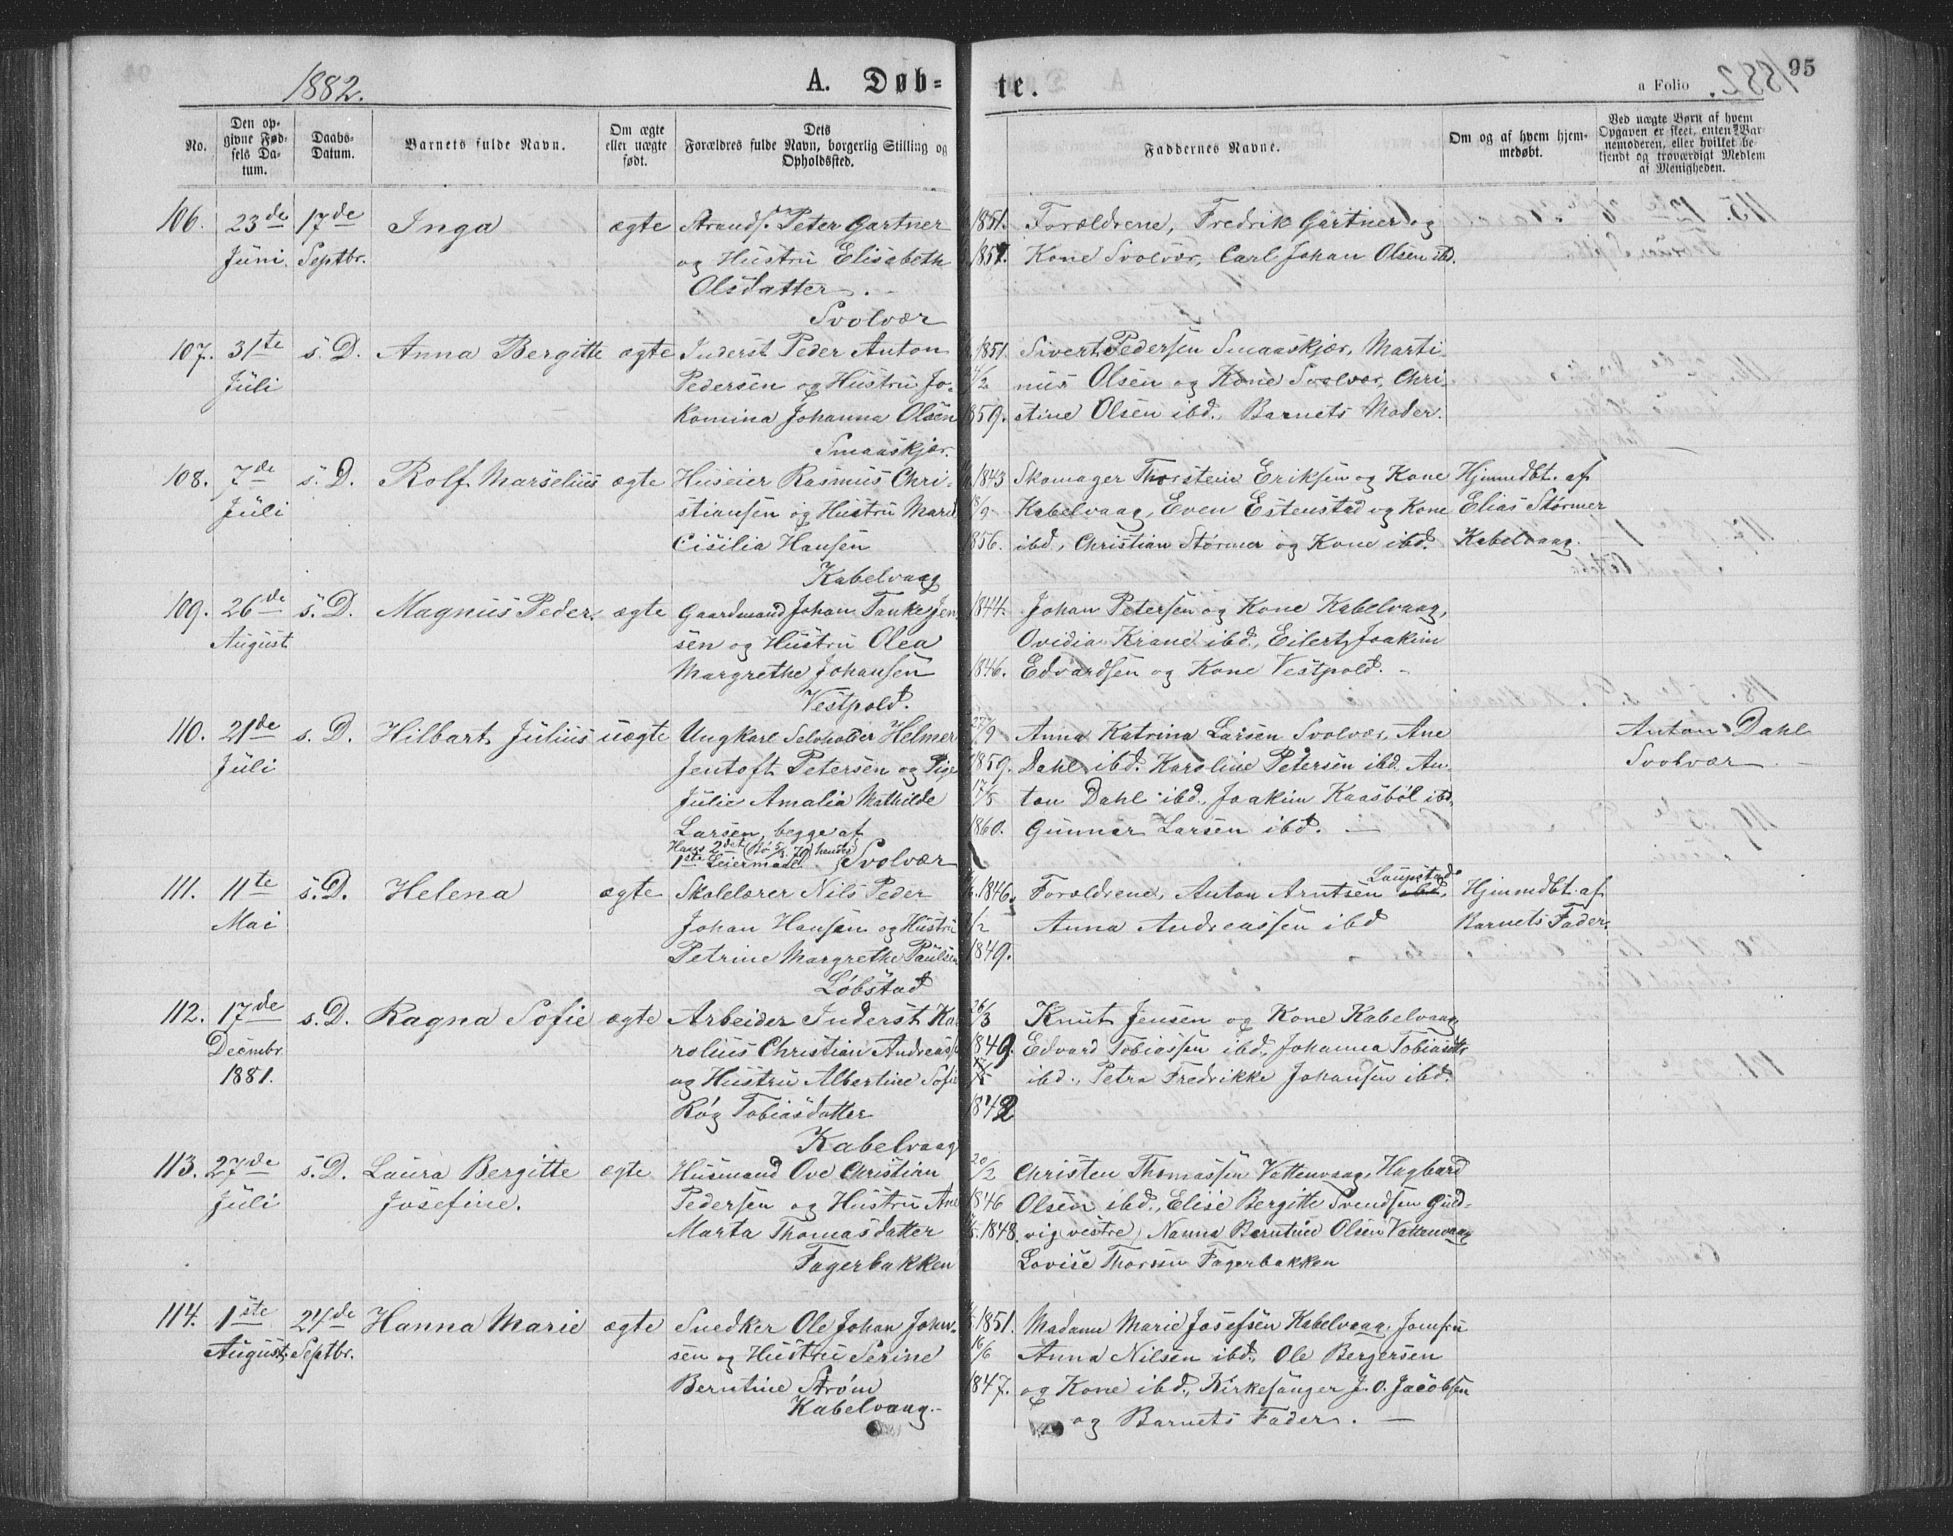 1882.
A. Døb-
te.
a Folio
95
No.
Den op-
givne Fød-
sels Da-
tum.
Daabs-
Datum.
Barnets fulde Navn.
Om ægte
eller uægte
født.
Dets
Forældres fulde Navn, borgerlig Stilling og
Opholdssted.
Faddernes Navne.
Om og af hvem hjem-
medøbt.
Ved uægte Børn af hvem
Opgaven er skeet, enten Bar-
nemoderen, eller hvilket be-
kjendt og troværdigt Medlem
af Menigheden.
106. 23de 17de Inga ægte Strands. Peter Gartner 1851. Forældrene, Fredrik Gärtner og
Juni. Septbr. og Hustru Elisabeth 1857. Kone Svolvær, Carl Johan Olsen ibd.
Olsdatter.
Svolvær
107. 31te s. D. Anna Bergitte ægte Inderst Peder Anton 1851. Sivert Pedersen Smaaskjær, Marti-
Juli Pedersen og Hustru Jo- /2 nus Olsen og Kone Svolvær, Chri-
komina Johanna Olsen 1859. stine Olsen ibd., Barnets Moder.
Smaaskjær.
108. 7de s. D. Rolf Marselius ægte Huseier Rasmus Chri- 1843 Skomager Thorstein Eriksen og Kone Hjmmdbt. af
Juli stiansen og Hustru Marie /9 Kabelvaag, Even Estenstad og Kone Elias Størmer
Cisilia Hansen 1856. ibd, Christian Størmer og Kone ibd. Kabelvaag.
Kabelvaag
109. 26de s. D. Magnus Peder. ægte Gaardmand Johan Tanke Jen 1844. Johan Petersen og Kone Kabelvaag,
August sen og Hustru Olea Ovidia Krane ibd., Eilert Joakim
Margrethe Johansen 1846. Edvardsen og Kone Vestpold.
Vestpold.
110. 21de s. D. Hilbart Julius uægte Ungkarl Selvholder Helmer 27/9 Anna Katrina Larsen Svolvær, Ane Anton Dahl
Juli Jentoft Petersen og Pige 1859. Dahl ibd. Karoline Petersen ibd. An- Svolvær
Julie Amalia Mathilde 17/5 ton Dahl ibd., Joakim Kaasböl ibd,
Larsen, begge af 1860. Gunner Larsen ibd.
Hans 2det, hendes
1ste Leiermaal. Svolvær
111. 11te s. D. Helena ægte Skolelærer Nils Peder 1846. Forældrene, Anton Arntsen Laupstad ibd, Hjmmdbt. af
Mai Johan Hansen og Hustru /2 Anna Andreassen ibd Barnets Fader.
Petrine Margrethe Paulsen 1849.
Löbstad
112. 17de s. D. Ragna Sofie ægte Arbeider Inderst Ka 26/3 Knut Jensen og Kone Kabelvaag
Decmbr rolius Christian Andreass 1849. Edvard Tobiassen ibd., Johanna Tobiasdtr
1881. og Hustru Albertine Sofie ibd., Petra Fredrikke Johansen ibd.
Rög Tobiasdatter 1842
Kabelvaag
113. 27de s. D. Laura Bergitte ægte Husmand Ove Christian 20/2 Christen Thomassen Vattenvaag, Hagbard
Juli Josefine. Pedersen og Hustru Ane 1846 Olsen ibd., Elise Bergitte Svendsen Guld-
Marta Thomasdatter 1848. vig (vestre) Nanna Berntine Olsen Vattenvaag
Fagerbakken Lovise Thorsen Fagerbakken
114. 1ste 24de Hanna Marie ægte Snedker Ole Johan John- 1851. Madam Marie Josefsen Kabelvaag, Jomfru
August Septbr. sen og Hustru Serine 16/6 Anna Nilsen ibd., Ole Bergersen
Berntine Strøm 1847. og Kone ibd., Kirkesanger J. O. Jacobsen
Kabelvaag. og Barnets Fader.